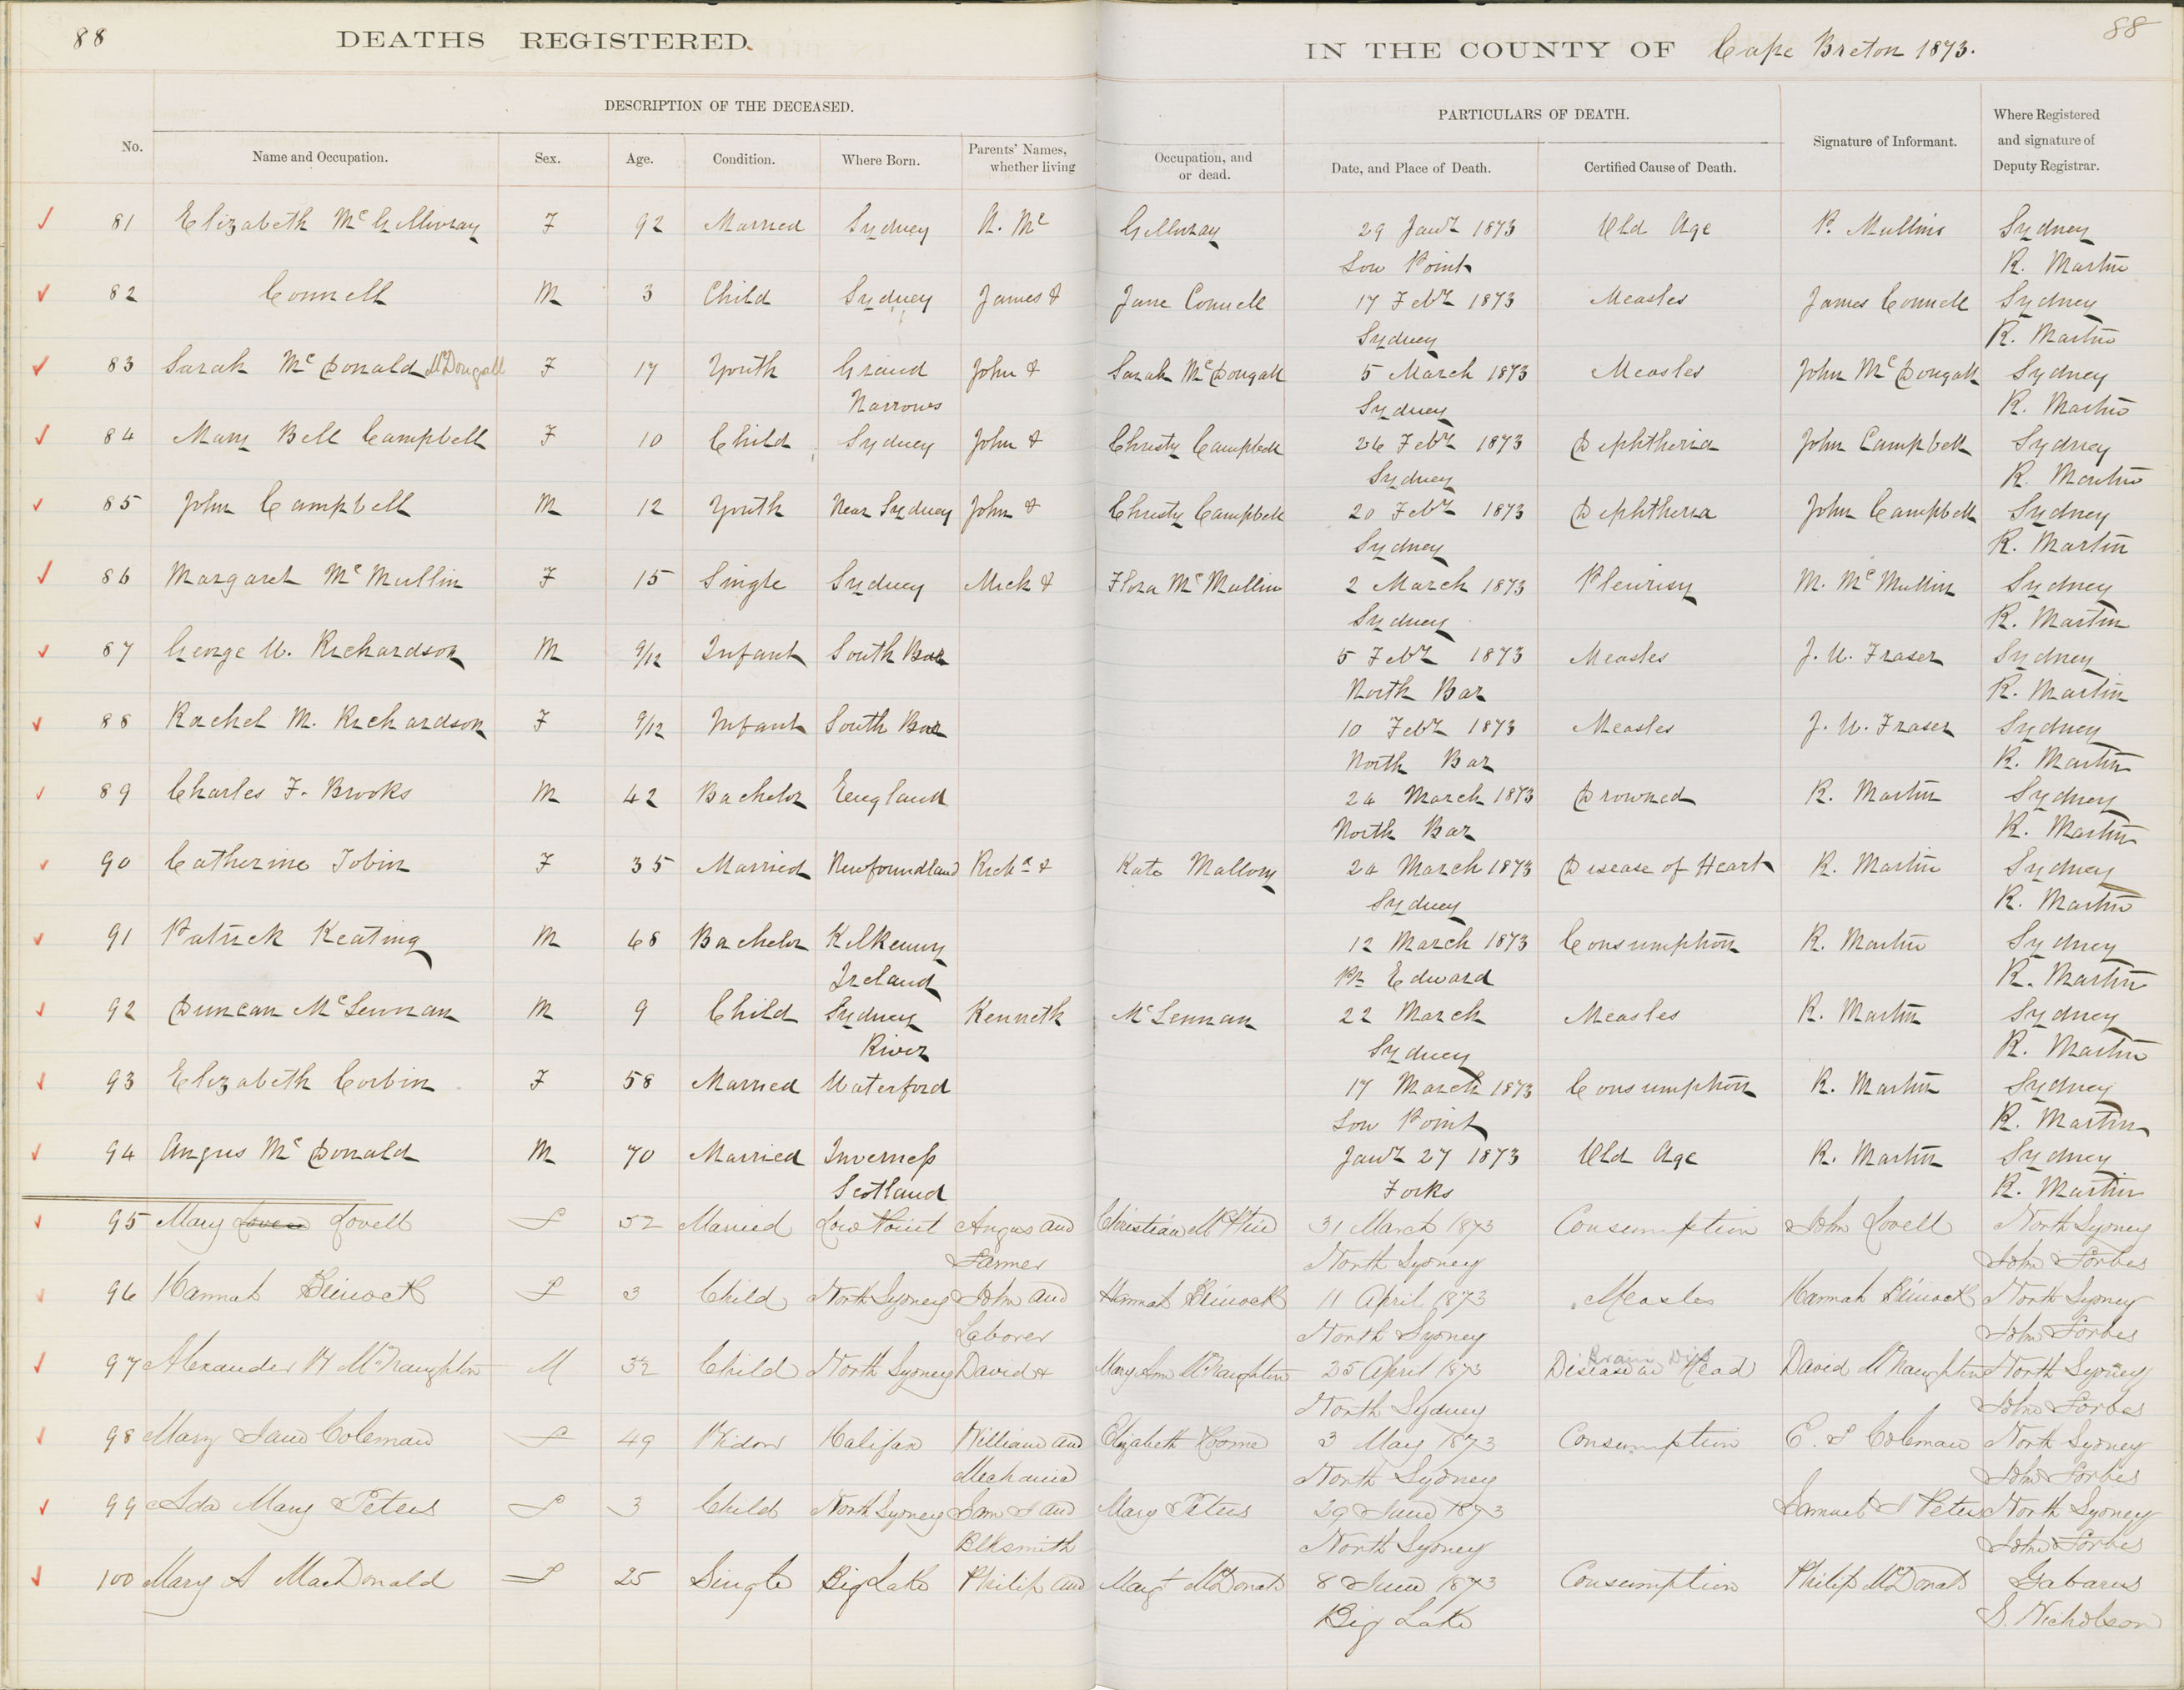 88
DEATHS REGISTERED.
IN THE COUNTY OF Cape Breton 1873.
88
DESCRIPTION OF THE DECEASED.
PARTICULARS OF DEATH.
No. Name and Occupation. Sex. Age. Condition. Where Born. Parents' Names, whether living Occupation, and or dead. Date, and Place of Death. Certified Cause of Death. Signature of Informant. Where Registered and signature of Deputy Registrar.
81 Elizabeth McGillivray F 92 Married Sydney A. Mc Gillivray 29 Jany 1873 Old Age P. Mullins Sydney
Low Point R. Martin
82 Connell M 3 Child Sydney James & Jane Connell 17 Feby 1873 Measles James Connell Sydney
Sydney R. Martin
83 Sarah McDonald McDougall F 17 Youth Grand John & Sarah McDougall 5 March 1873 Measles John McDougall Sydney
Narrows Sydney R. Martin
84 Mary Bell Campbell F 10 Child Sydney John & Christy Campbell 26 Feby 1873 Diphtheria John Campbell Sydney
Sydney R. Martin
85 John Campbell M 12 Youth Near Sydney John & Christy Campbell 20 Feby 1873 Diphtheria John Campbell Sydney
Sydney R. Martin
86 Margaret McMullin F 15 Single Sydney Mick & Flora McMullin 2 March 1873 Pleurisy M. McMullin Sydney
Sydney R. Martin
87 George W. Richardson M 9/12 Infant South Bar 5 Feby 1873 Measles J. W. Fraser Sydney
North Bar R. Martin
88 Rachel M. Richardson F 9/12 Infant South Bar 10 Feby 1873 Measles J. W. Fraser Sydney
North Bar R. Martin
89 Charles F. Brooks M 42 Bachelor England 24 March 1873 Drowned R. Martin Sydney
North Bar R. Martin
90 Catherine Tobin F 35 Married Newfoundland Richd & Kate Mallory 24 March 1873 Disease of Heart R. Martin Sydney
Sydney R. Martin
91 Patrick Keating M 68 Bachelor Kilkenny 12 March 1873 Consumption R. Martin Sydney
Ireland Pr Edward R. Martin
92 Duncan McLennan M 9 Child Sydney Kenneth McLennan 22 March Measles R. Martin Sydney
River Sydney R. Martin
93 Elizabeth Corbin F 58 Married Waterford 17 March 1873 Consumption R. Martin Sydney
Low Point R. Martin
94 Angus McDonald M 70 Married Inverness Jany 27 1873 Old Age R. Martin Sydney
Scotland Forks R. Martin
95 Mary Lovell F 52 Married Low Point Angus and Christian McPhee 31 March 1873 Consumption John Lovell North Sydney
Farmer North Sydney John Forbes
96 Hannah F 3 Child North Sydney John and Hannah 11 April 1873 Measles Hannah North Sydney
Laborer North Sydney John Forbes
97 Alexander W McNaughton M 3½ Child North Sydney David & Mary Ann McNaughton 25 April 1873 Disease in Head Brain Dis David McNaughton North Sydney
North Sydney John Forbes
98 Mary Jane Coleman F 49 Widow Halifax William and Elizabeth 3 May 1873 Consumption C. F Coleman North Sydney
Mechanic North Sydney John Forbes
99 Ada Mary Peters F 3 Child North Sydney Sam J and Mary Peters 29 June 1873 Samuel J Peters North Sydney
Blksmith North Sydney John Forbes
100 Mary A MacDonald F 25 Single Big Lake Philip and Margt McDonald 8 June 1873 Consumption Philip McDonald Gabarus
Big Lake S. Nicholson